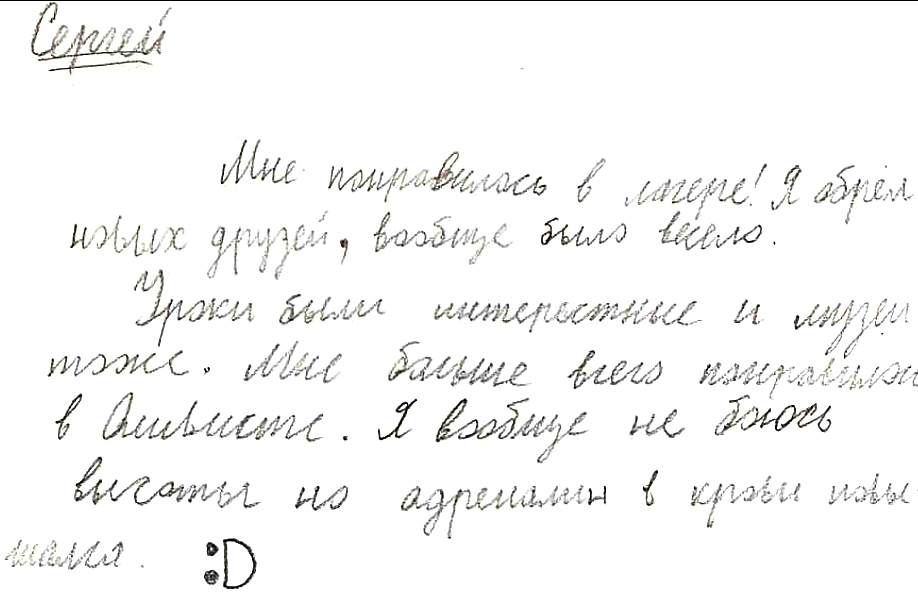 Сергей
Мне понравилось в лагере! Я обрёл
новых друзей, вообще было весело.
Уроки были интерестные и музеи
тоже. Мне больше всего понравилос
в . Я вообще не боюсь
высоты но адреналин в крови повы-
шался. :D